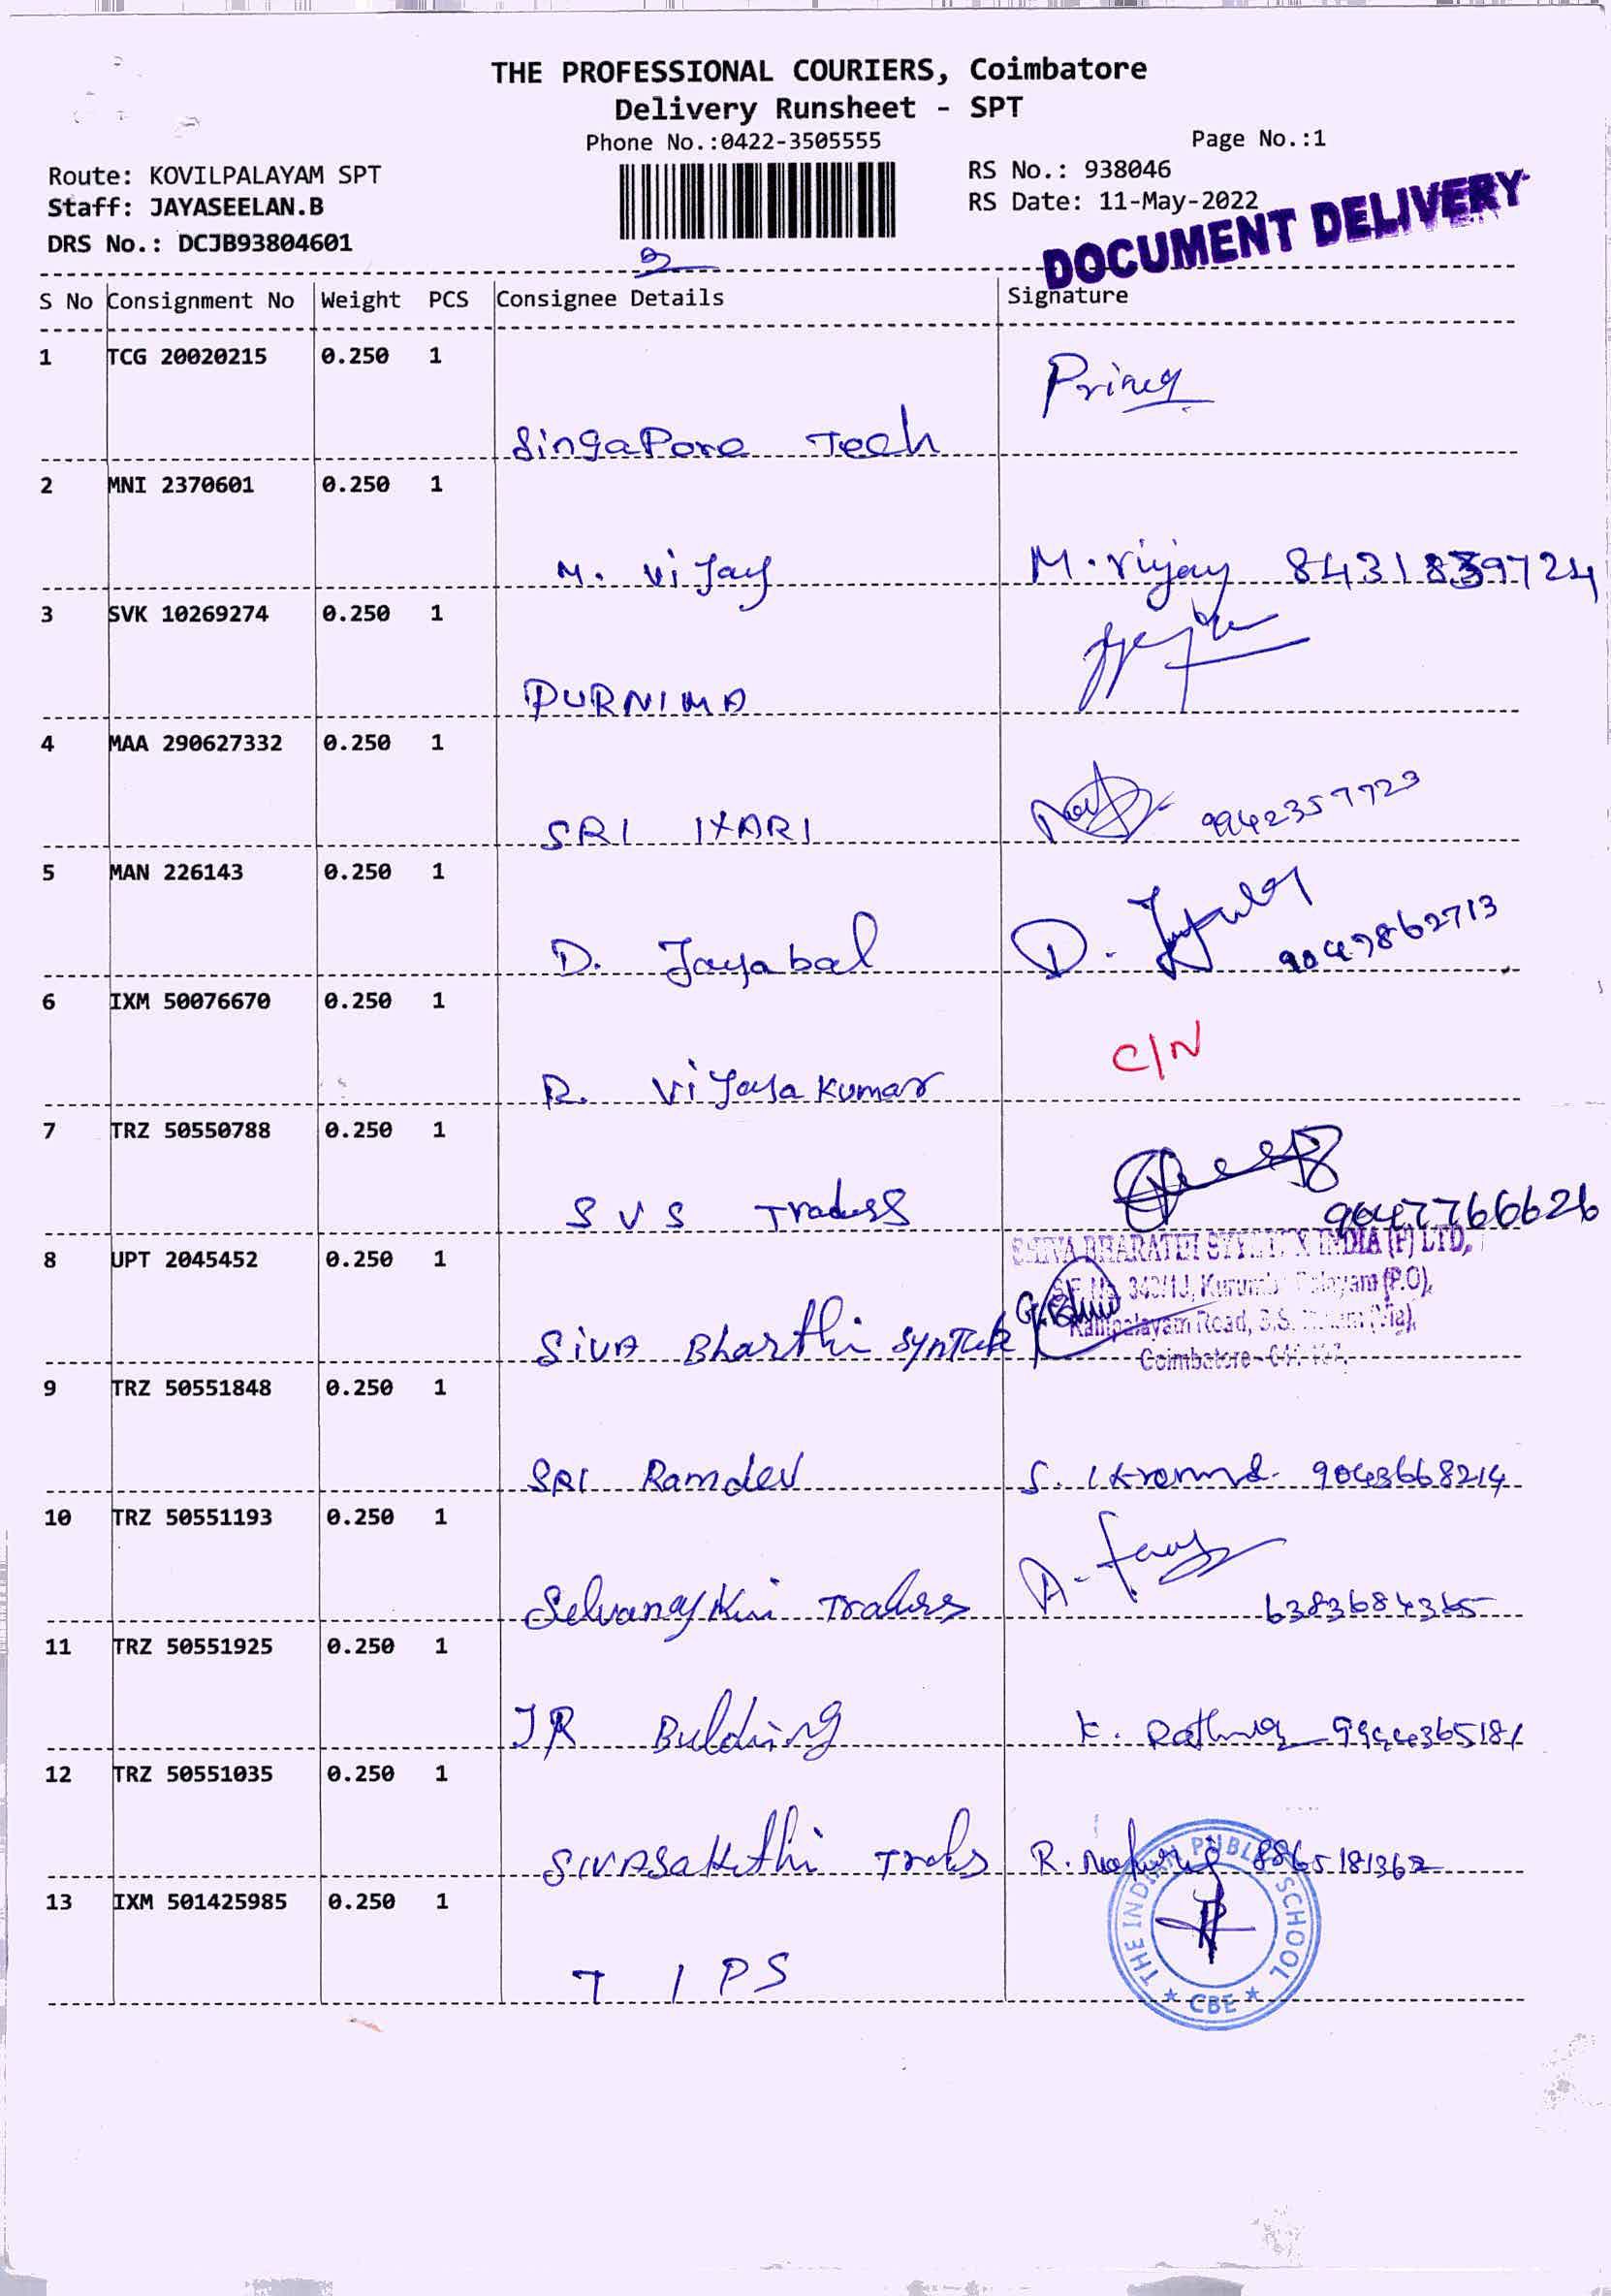 THE PROFESSIONAL COURIERS, Coimbatore
Delivery Runsheet - SPT
Phone No.:0422-3505555
Page No.:1
Route: KOVILPALAYAM SPT
RS No.: 938046
Staff: JAYASEELAN.B
RS Date: 11-May-2022
DRS No.: DCJB93804601
DOCUMENT DELIVERY
2
S No Consignment No Weight PCS Consignee Details Signature
1 TCG 20020215 0.250 1
Singapore Tech
2 MNI 2370601 0.250 1
M. Vijay M. Vijay
3 SVK 10269274 0.250 1
PURNIMA
4 MAA 290627332 0.250 1
SRI HARI 9942357723
5 MAN 226143 0.250 1
D. Jayabal D. 9047862713
6 IXM 50076670 0.250 1
C/N
R. Vijayakumar
7 TRZ 50550788 0.250 1
S V S Traders 9047766626
8 UPT 2045452 0.250 1
SHIVA BHARATHI INDIA (P) LTD,
(P.O),
Road, (Via),
Coimbatore
Siva Bharthi
9 TRZ 50551848 0.250 1
SRI Ramdev S. 9043668214
10 TRZ 50551193 0.250 1
Traders A. 6383684365
11 TRZ 50551925 0.250 1
JR Bulding K. 9944365181
12 TRZ 50551035 0.250 1
R. 8865181362
13 IXM 501425985 0.250 1
T I P S
THE INDIAN PUBLIC SCHOOL
★ CBE ★